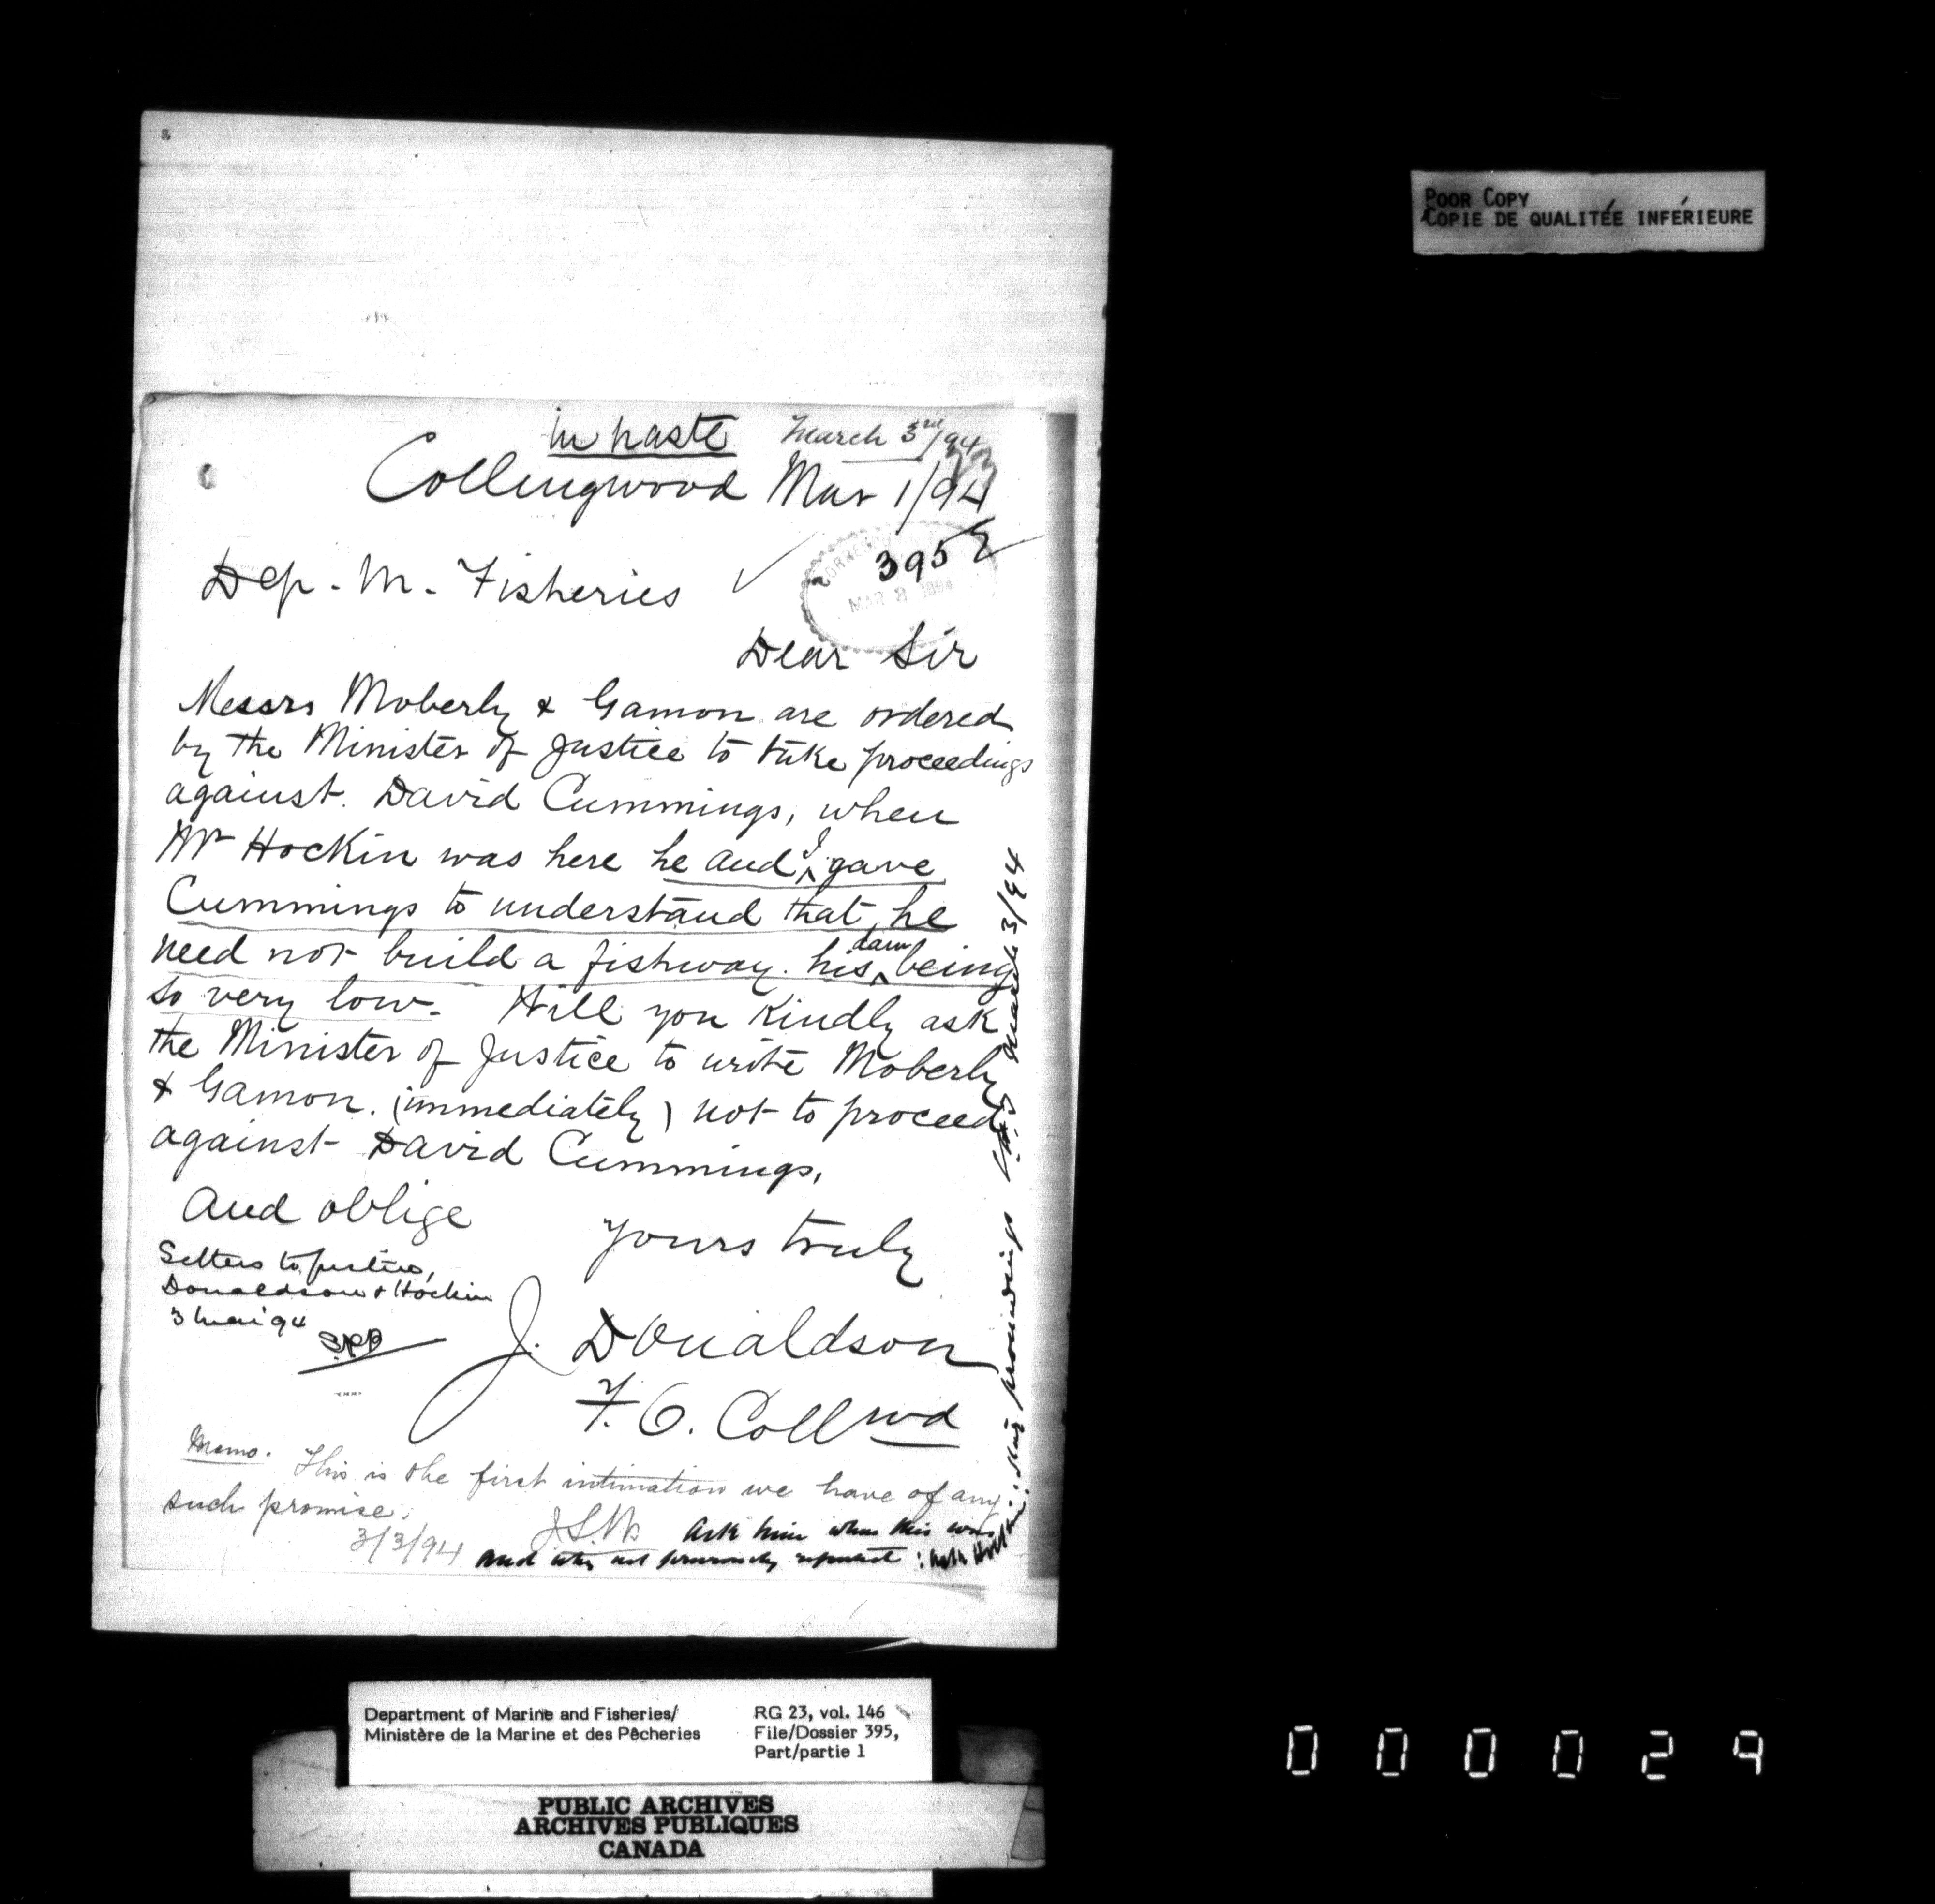 POOR COPY
COPIE DE QUALITÉE INFÉRIEURE
in haste March 3rd/94
Collingwood Mar 1/94
395
Dep. M. Fisheries
MAR 3 1894
Dear Sir
Messrs Moberly & Gamon are ordered
by the Minister of Justice to take proceedings
against. David Cummings, when
Mr Hockin was here he and I gave
Cummings to understand that he
need not build a fishway. his dam being
so very low. Will you kindly ask
the Minister of Justice to write Moberly
& Gamon. (immediately) not to proceed
against David Cummings,
And oblige
Yours truly
Letters to Justice,
Donaldson & Hockin
3 Mar '94
J. Donaldson
F. O. Collwd
Memo. This is the first intimation we have of any
such promise.
3/3/94
Ask him when this was
and why not previously reported : Ask Hockin
: Stay proceedings March 3/94
Department of Marine and Fisheries/
Ministère de la Marine et des Pêcheries
RG 23, vol. 146
File/Dossier 395,
Part/partie 1
PUBLIC ARCHIVES
ARCHIVES PUBLIQUES
CANADA
000029